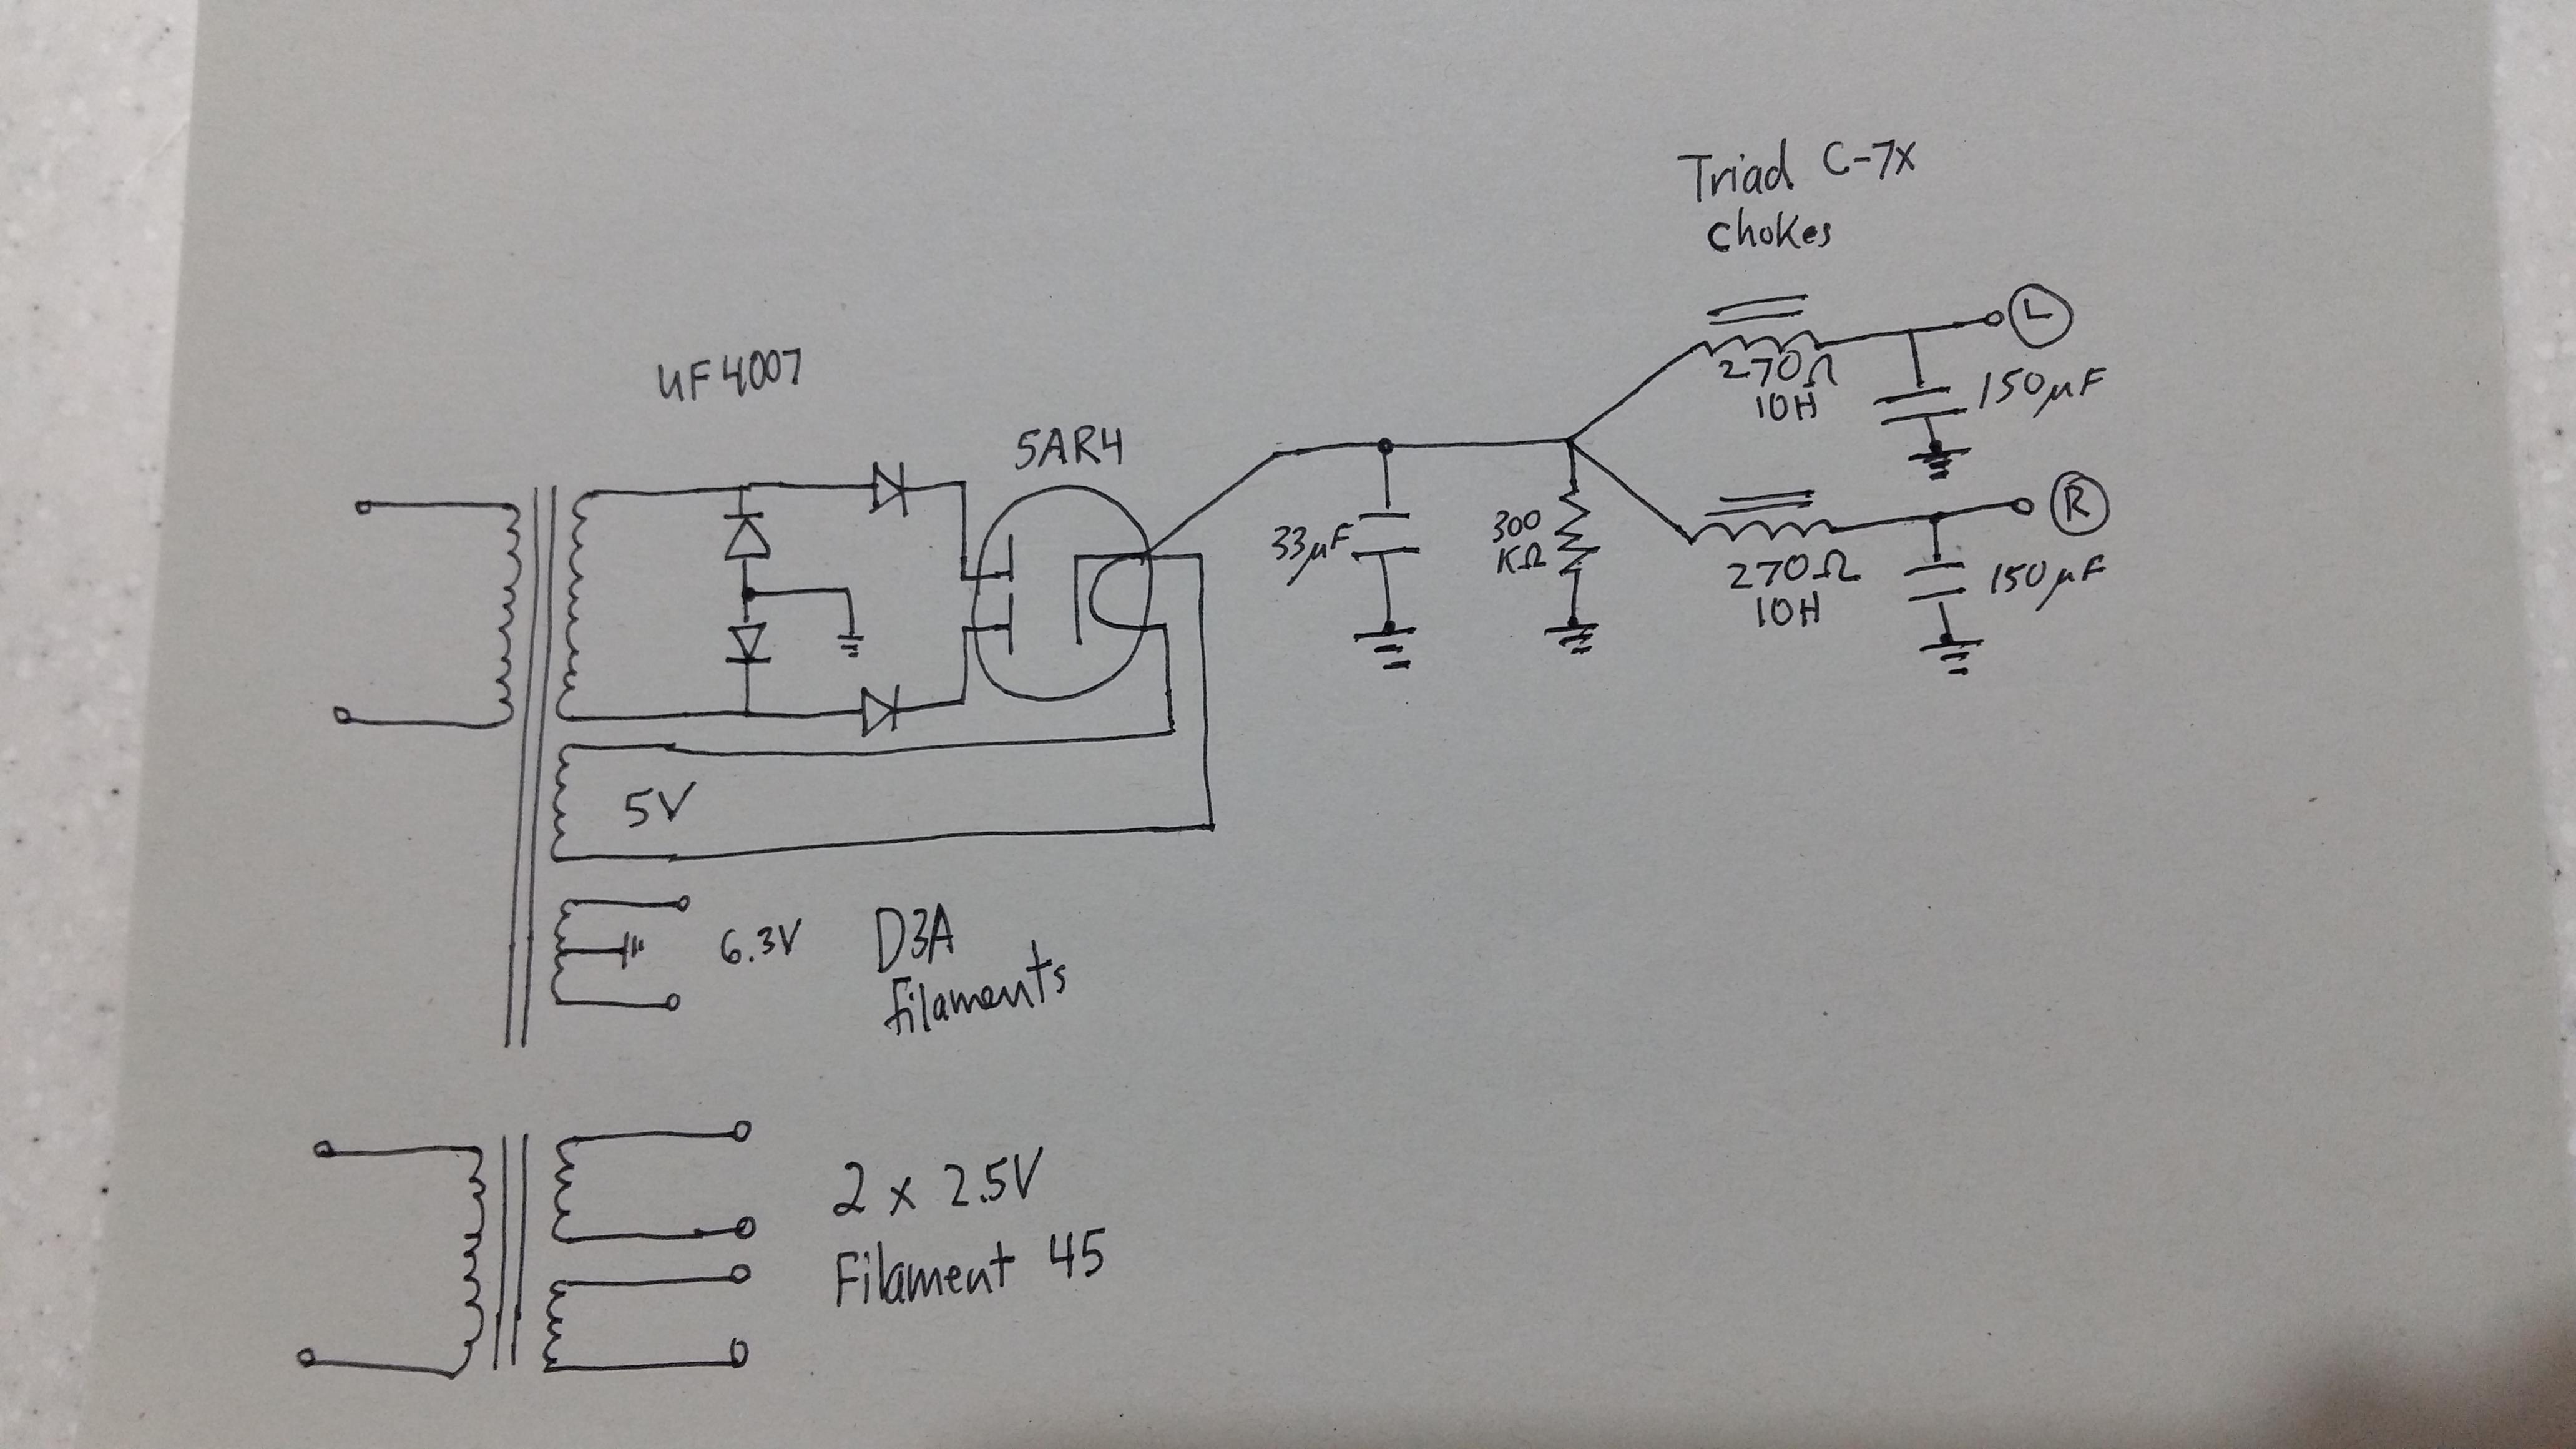 Triad C-7x
chokes
UF4007
5AR4
L
270Ω
10H
150µF
33µF
300
KΩ
R
270Ω
10H
150µF
5V
6.3V
D3A
filaments
2 x 2.5V
Filament 45